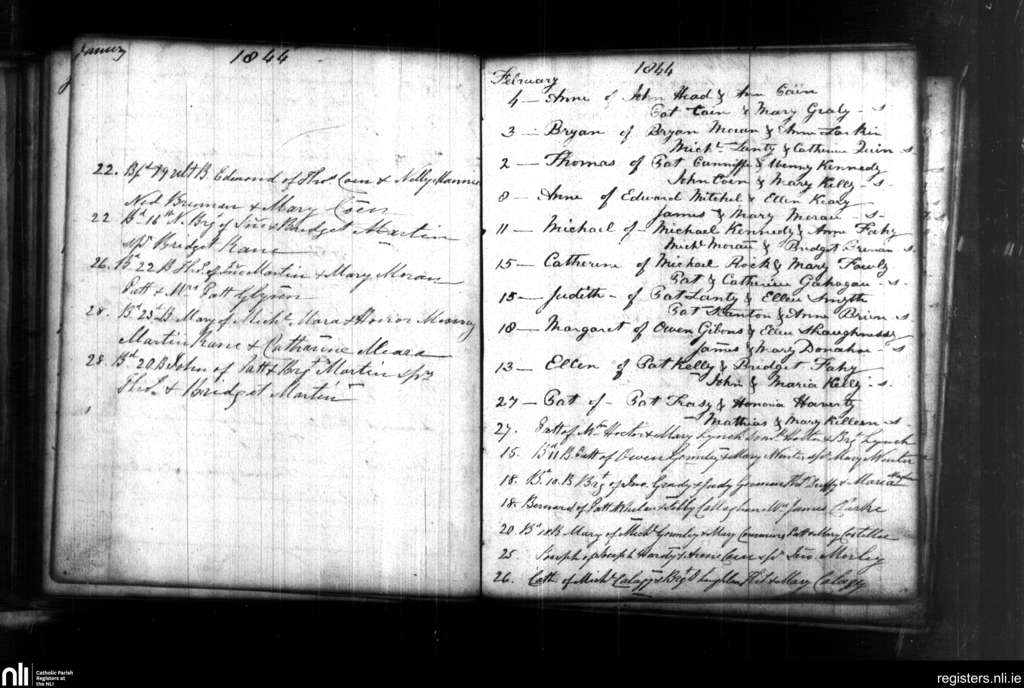 January
1844
22. Bpt 19 ult B. Edmond of Thos Coen & Nelly Mannin
Ned Brennan & Mary Coen
22 Bn 16th N. Brgt of Jno & Bridget Martin
sps Bridget Kane
26. Bn 22 B Thos of Jno Martin & Mary Moran
Patt & Mrs Patt Glynn
28. Bn 25 B Mary of Michl Mara & Honor Murray
Martin Kane & Catharine Meara
28. Bn 20 B John of Patt & Brgt Martin sps
Thos & Bridget Martin
1844
February
4 — Anne of John Head & Ann Cain
Pat Coin & Mary Graly - s
3 — Bryan of Bryan Moran & Ann Larkin
Michl Lanty & Catherine Quin s
2 — Thomas of Pat Cunniffe & Winny Kennedy
John Coen & Mary Kelly - s
8 — Anne of Edward Mitchel & Ellen Keary
James & Mary Moran - s
11 — Michael of Michael Kennedy & Anne Fahy
Michl Moran & Bridget s.
15 — Catherine of Michael Rock & Mary Fowly
Pat & Catherine Gahagan - s
15 — Judith - of Pat Lanty & Ellen Smyth
Pat Stanton & Anne Brien s
18 — Margaret of Owen Gibons & Ellen Shaughnessy
James & Mary Donahoe - s
13 — Ellen of Pat Kelly & Bridget Fahy
John & Maria Kelly - s.
27 — Pat of - Pat & Honoria Haverty
Mathias & Mary Killeen - s
27. Patt of & Mary Lynch & Brgt Lynch
15. Bn 11 B Patt of Owen & Mary sps Mary
18. Bn 10. B Brgt of Jno. Grady & Duffy & Maria
18. Bernard of Patt & Callaghan James Clarke
20 Bn 18 B. Mary of Michl & Mary Patt & Mary Costelloe
25. Joseph of Joseph Hardy & Anne sps Jno. Morley
26. Cath. of Michl & Brgt & Mary
nli
Catholic Parish
Registers at
the NLI
registers.nli.ie